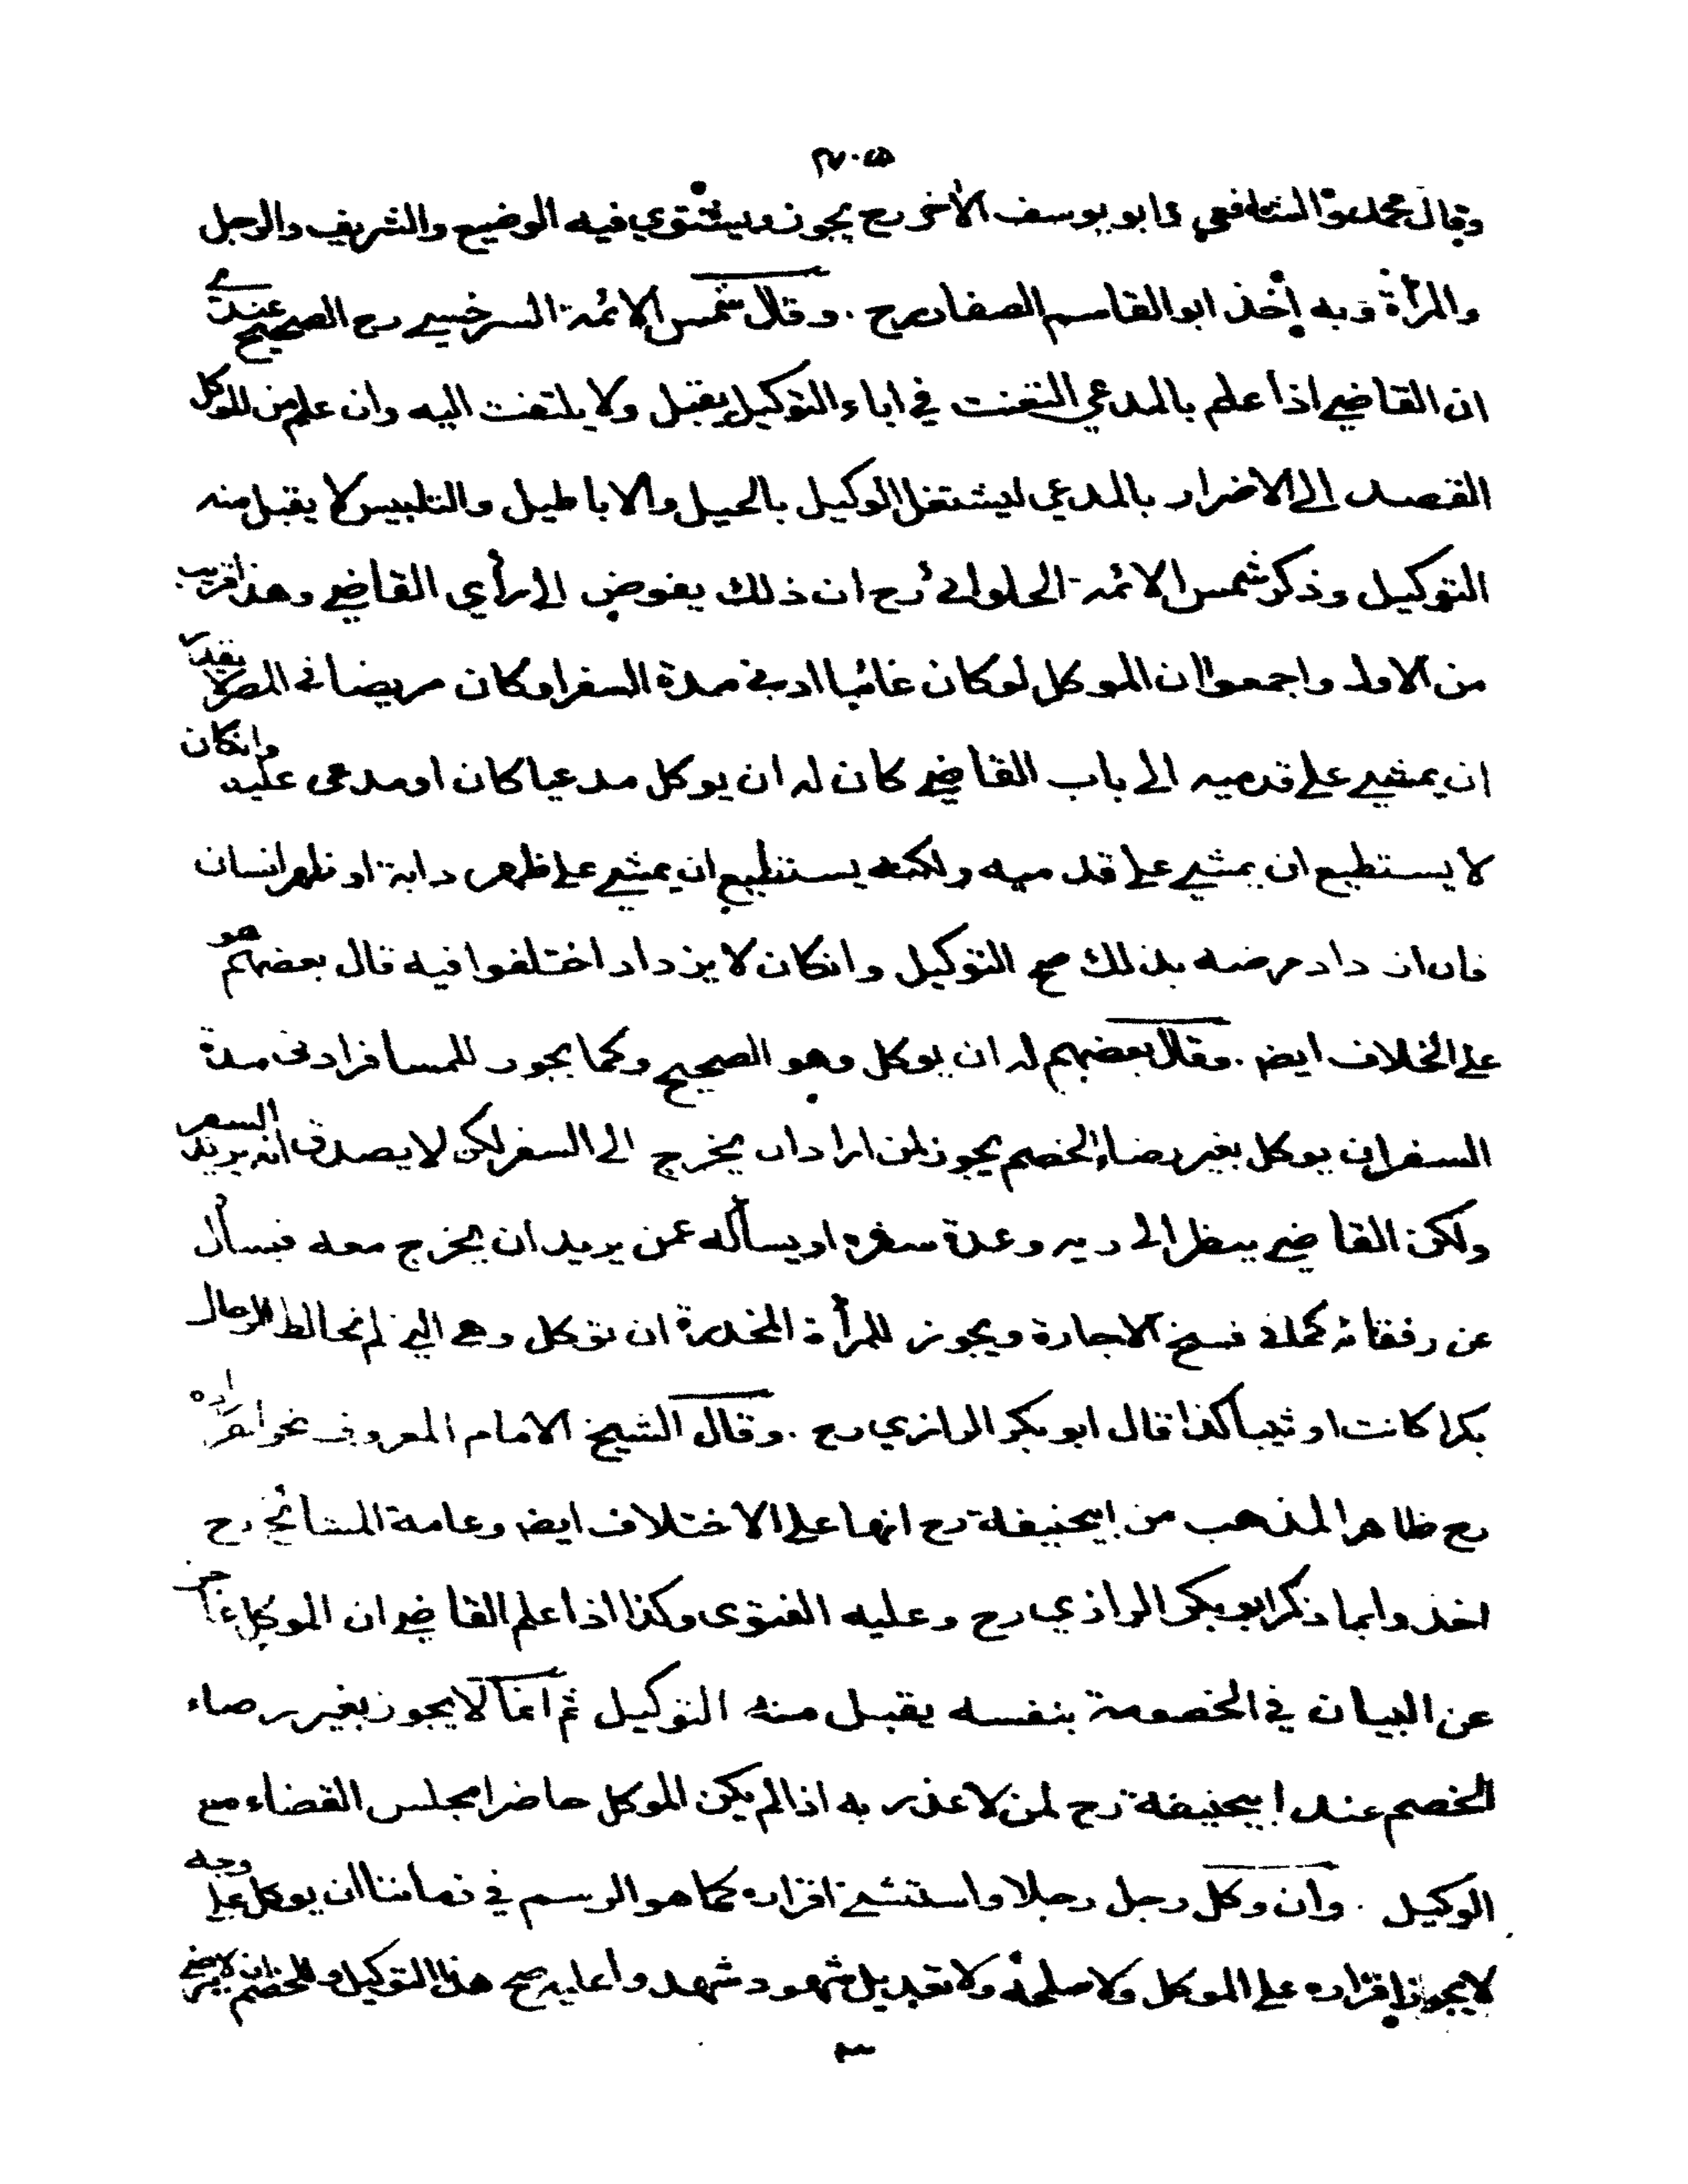 وقال محمد والشافعي وابو يوسف الآخر رح يجوز ويستوي فيه الوضيع والشريف والرجل
والمرأة وبه أخذ ابو القاسم الصفار رح . وقال شمس الائمة السرخسي رح الصحيح عندي
ان القاضي اذا علم بالمدعي التعنت في اباء التوكيل يقبل ولا يلتفت اليه وان علم من الموكل
القصد الى الاضرار بالمدعي ليشتغل الوكيل بالحيل والاباطيل والتلبيس لا يقبل منه
التوكيل وذكر شمس الائمة الحلوائي رح ان ذلك يفوض الى رأي القاضي وهذا قريب
من الاول واجمعوا ان الموكل لو كان غائبا ادنى مدة السفر او كان مريضا في المصر لا يقدر
ان يمشي على قدميه الى باب القاضي كان له ان يوكل مدعيا كان او مدعى عليه وانكان
لا يستطيع ان يمشي على قدميه ولكنه يستطيع ان يمشي على ظهر دابة او ظهر انسان
فان ازداد مرضه بذلك صح التوكيل وانكان لا يزداد اختلفوا فيه قال بعضهم هو
على الخلاف ايض . وقال بعضهم له ان يوكل وهو الصحيح وكما يجوز للمسافر ادنى مدة
السفر ان يوكل بغير رضاء الخصم يجوز لمن اراد ان يخرج الى السفر لكن لا يصدق انه يريد السفر
ولكن القاضي ينظر الى زيه وعدة سفره او يسأله عمن يريد ان يخرج معه فيسأل
عن رفقائه كما في فسخ الاجارة ويجوز للمرأة المخدرة ان توكل وهي التي لم تخالط الرجال
بكرا كانت او ثيبا كذا قال ابو بكر الرازي رح . وقال الشيخ الامام المعروف بخواهرزاده
رح ظاهر المذهب من ابيحنيفة رح انها على الاختلاف ايض وعامة المشائخ رح
اخذوا بما ذكر ابو بكر الرازي رح وعليه الفتوى وكذا اذا علم القاضي ان الموكل عاجز
عن البيان في الخصومة بنفسه يقبل منه التوكيل ثم انما لا يجوز بغير رضاء
الخصم عند ابيحنيفة رح لمن لا عذر به اذا لم يكن الموكل حاضرا مجلس القضاء مع
الوكيل . وان وكل رجل رجلا واستثنى اقراره كما هو الرسم في زماننا ان يوكل على وجه
لا يجوز اقراره على الموكل ولا صلحه ولا تعديل شهود شهدوا عليه صح هذا التوكيل وللخصم ان لا يرضى